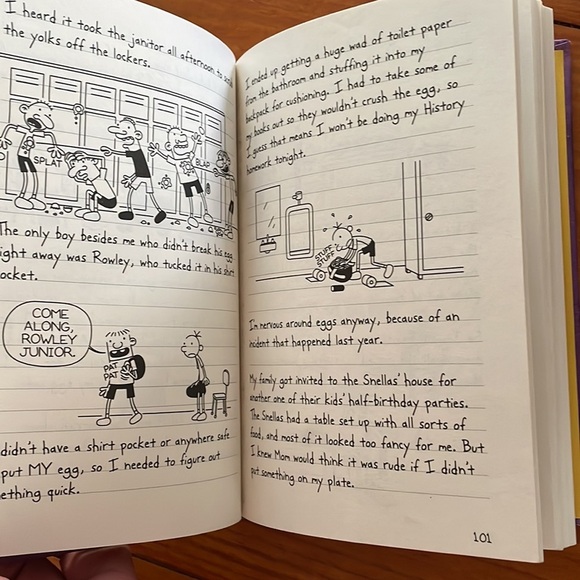 I heard it took the janitor all afternoon to
the yolks off the lockers.
SPLAT
BLAP
The only boy besides me who didn't break his egg
right away was Rowley, who tucked it in his shirt
pocket.
COME
ALONG,
ROWLEY
JUNIOR.
PAT
PAT
didn't have a shirt pocket or anywhere safe
put MY egg, so I needed to figure out
ething quick.
I ended up getting a huge wad of toilet paper
from the bathroom and stuffing it into my
backpack for cushioning. I had to take some of
my books out so they wouldn't crush the egg, so
I guess that means I won't be doing my History
homework tonight.
STUFF
STUFF
I'm nervous around eggs anyway, because of an
incident that happened last year.
My family got invited to the Snellas' house for
another one of their kids' half-birthday parties.
The Snellas had a table set up with all sorts of
food, and most of it looked too fancy for me. But
I knew Mom would think it was rude if I didn't
put something on my plate.
101